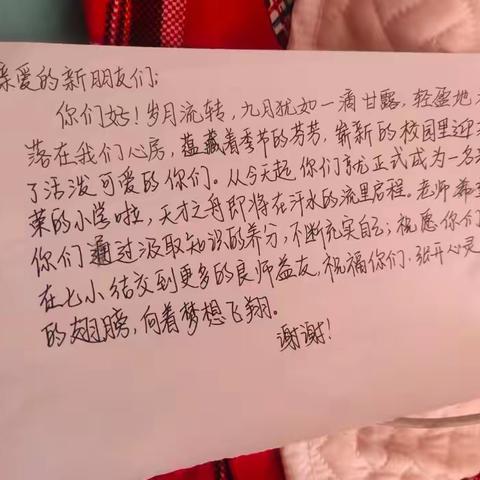 亲爱的新朋友们：
你们好！岁月流转，九月犹如一滴甘露，轻盈地
落在我们心房，蕴藏着季节的芬芳，崭新的校园里迎
了活泼可爱的你们。从今天起，你们就正式成为一名
荣的小学啦，天才之舟即将在汗水的流里启程。老师希
你们通过汲取知识的养分，不断充实自己；祝愿你们
在七小结交到更多的良师益友，祝福你们，张开心灵
的翅膀，向着梦想飞翔。
谢谢！